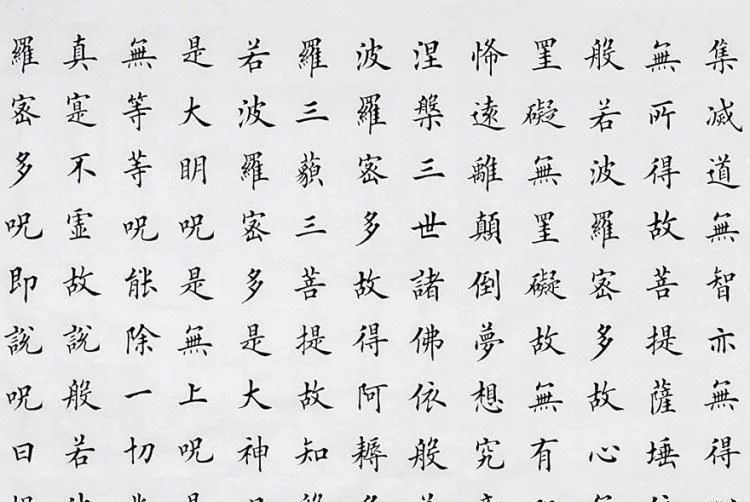 集滅道無智亦無得
無所得故菩提薩埵
般若波羅密多故心
罣礙無罣礙故無有
怖遠離顛倒夢想究
涅槃三世諸佛依般
波羅密多故得阿耨
羅三藐三菩提故知
若波羅密多是大神
是大明呪是無上呪
無等等呪能除一切
真寔不虛故說般若
羅密多呪即說呪曰